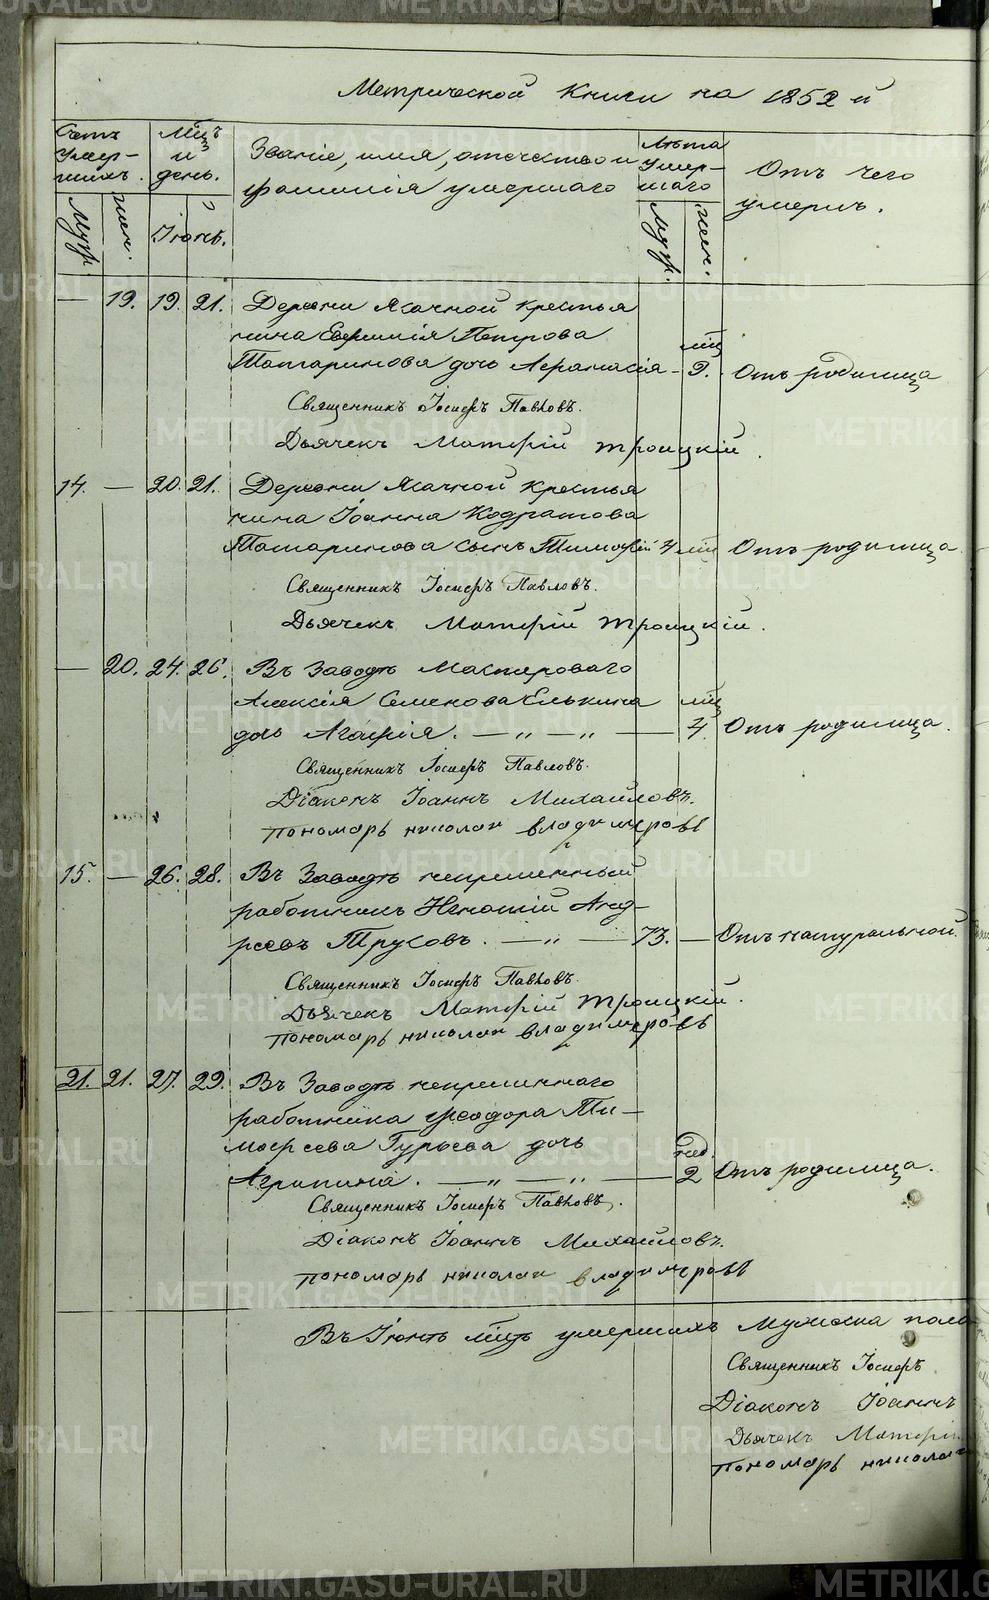 Метрической Книги на 1852 й
Счетъ умер-шихъ.
Мцъ и день.
Званіе, имя, отечество и фамилія умершаго
Лѣта умер-шаго
Отъ чего умеръ.
Муж. Жен. Іюнь. Муж. Жен.
— 19. 19. 21. Деревни Ясачной крестья
нина Евфимія Петрова мц
Татаринова дочь Афанасія — 9. Отъ родимца
Священникъ Іосифъ Павловъ.
Дьячекъ Матфій Троицкій.
14. — 20. 21. Деревни Ясачной крестья
нина Іоанна Кодратова
Татаринова сынъ Тимофій 4 мц Отъ родимца
Священникъ Іосифъ Павловъ.
Дьячекъ Матфій Троицкій.
— 20. 24. 26. Въ Заводѣ Мастероваго
Алексія Семенова Елькина мц
дочь Агафія. — „ — „ — 4. Отъ родимца.
Священникъ Іосифъ Павловъ.
Діаконъ Іоаннъ Михайловъ.
пономарь николаи владимеровъ
15. — 26. 28. Въ Заводѣ непременный
работникъ Игнатій Анд-
реевъ Трусовъ. — „ — 73. — Отъ натуральной.
Священникъ Іосифъ Павловъ.
Дьячекъ Матфій Троицкій.
пономарь николаи владимеровъ
21. 21. 27. 29. Въ Заводѣ непременнаго
работника Феодора Ти-
мофеева Гурьева дочь нед.
Агрипина. — „ — „ — 2 Отъ родимца.
Священникъ Іосифъ Павловъ.
Діаконъ Іоаннъ Михайловъ.
пономарь николаи владимеровъ
Въ Іюнѣ мцѣ умершихъ Мужска пола
Священникъ Іосифъ
Діаконъ Іоаннъ
Дьячекъ Матфій
пономарь николаи
METRIKI.GASO-URAL.RU